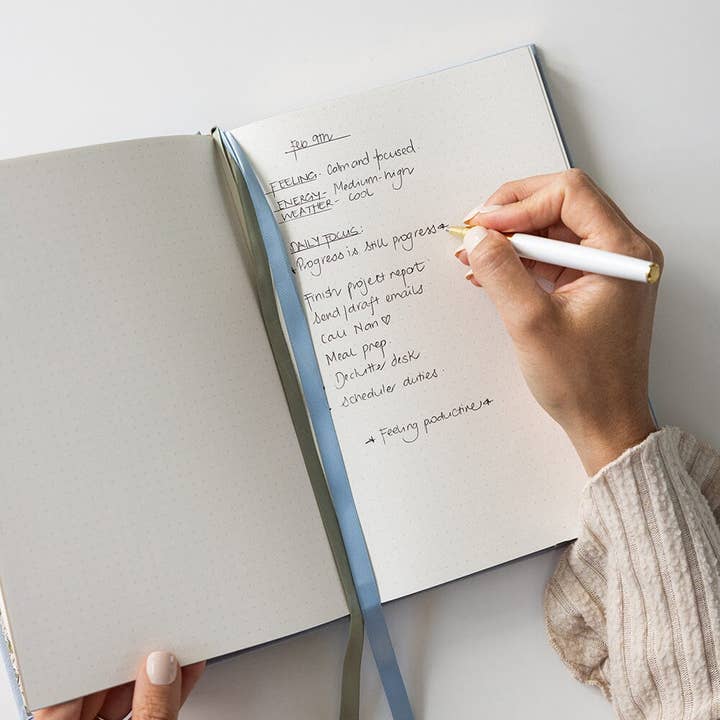 Feb 9th
FEELING- Calm and focused.
ENERGY- Medium-high
WEATHER- Cool
DAILY FOCUS:
Progress is still progress
Finish project report
Send/draft emails
Call Nan ♡
Meal prep.
Declutter desk
scheduler duties.
Feeling productive